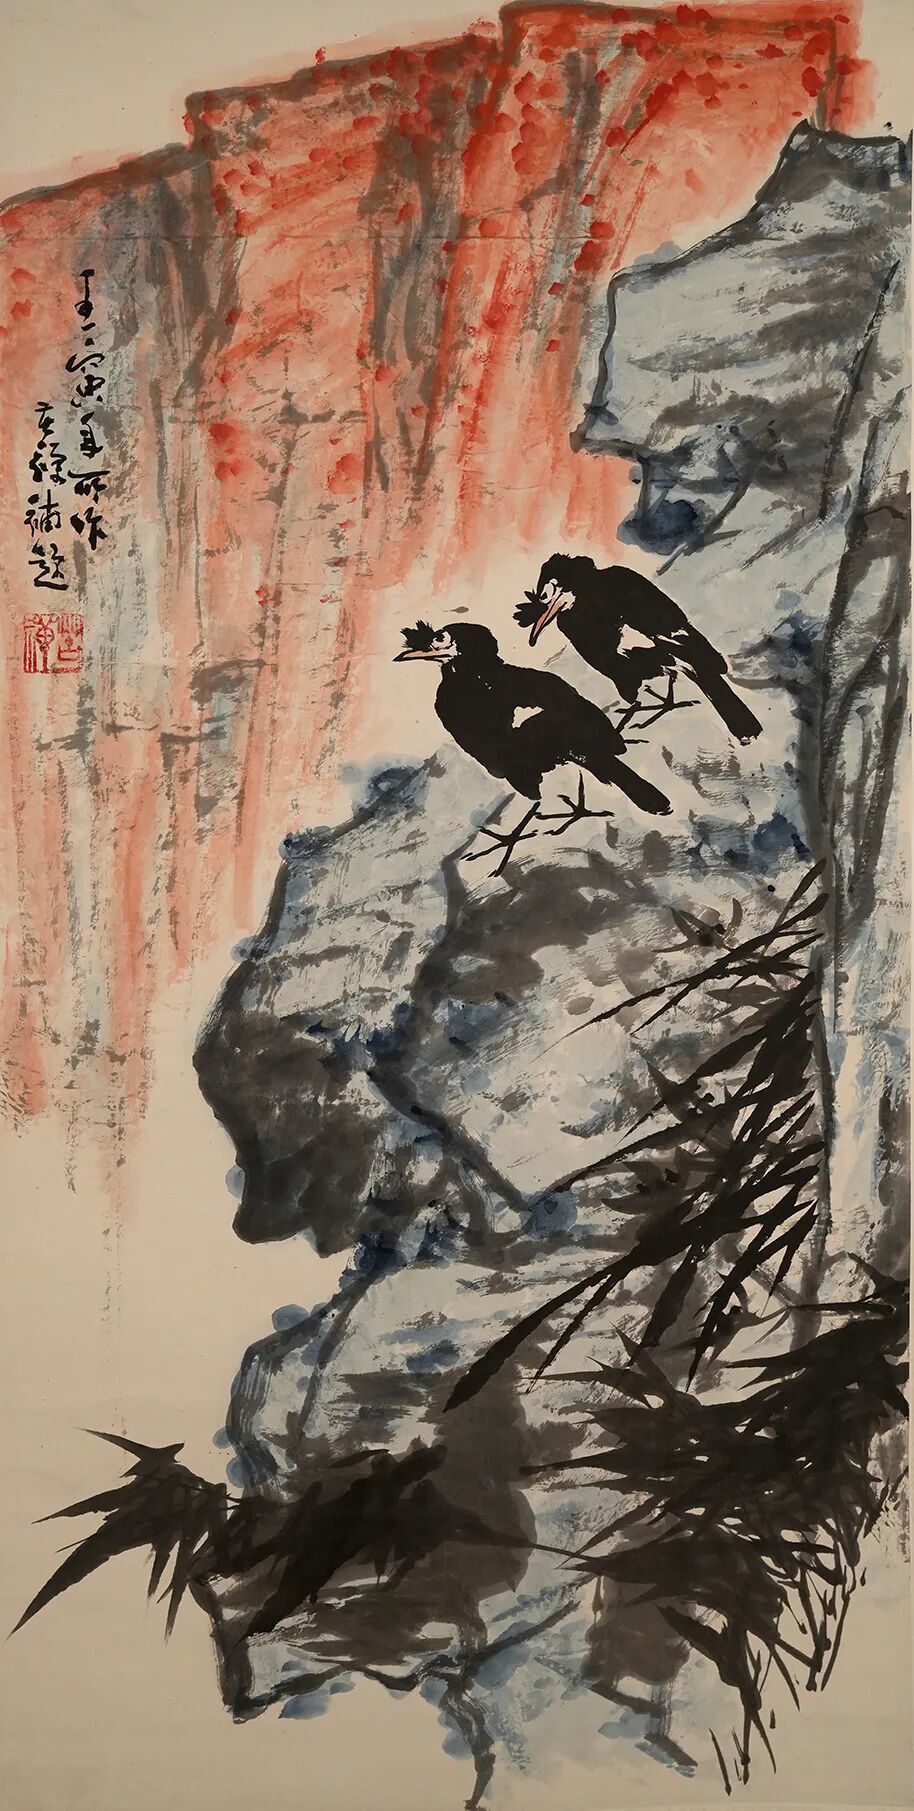 壬寅年所作
苦禪補題